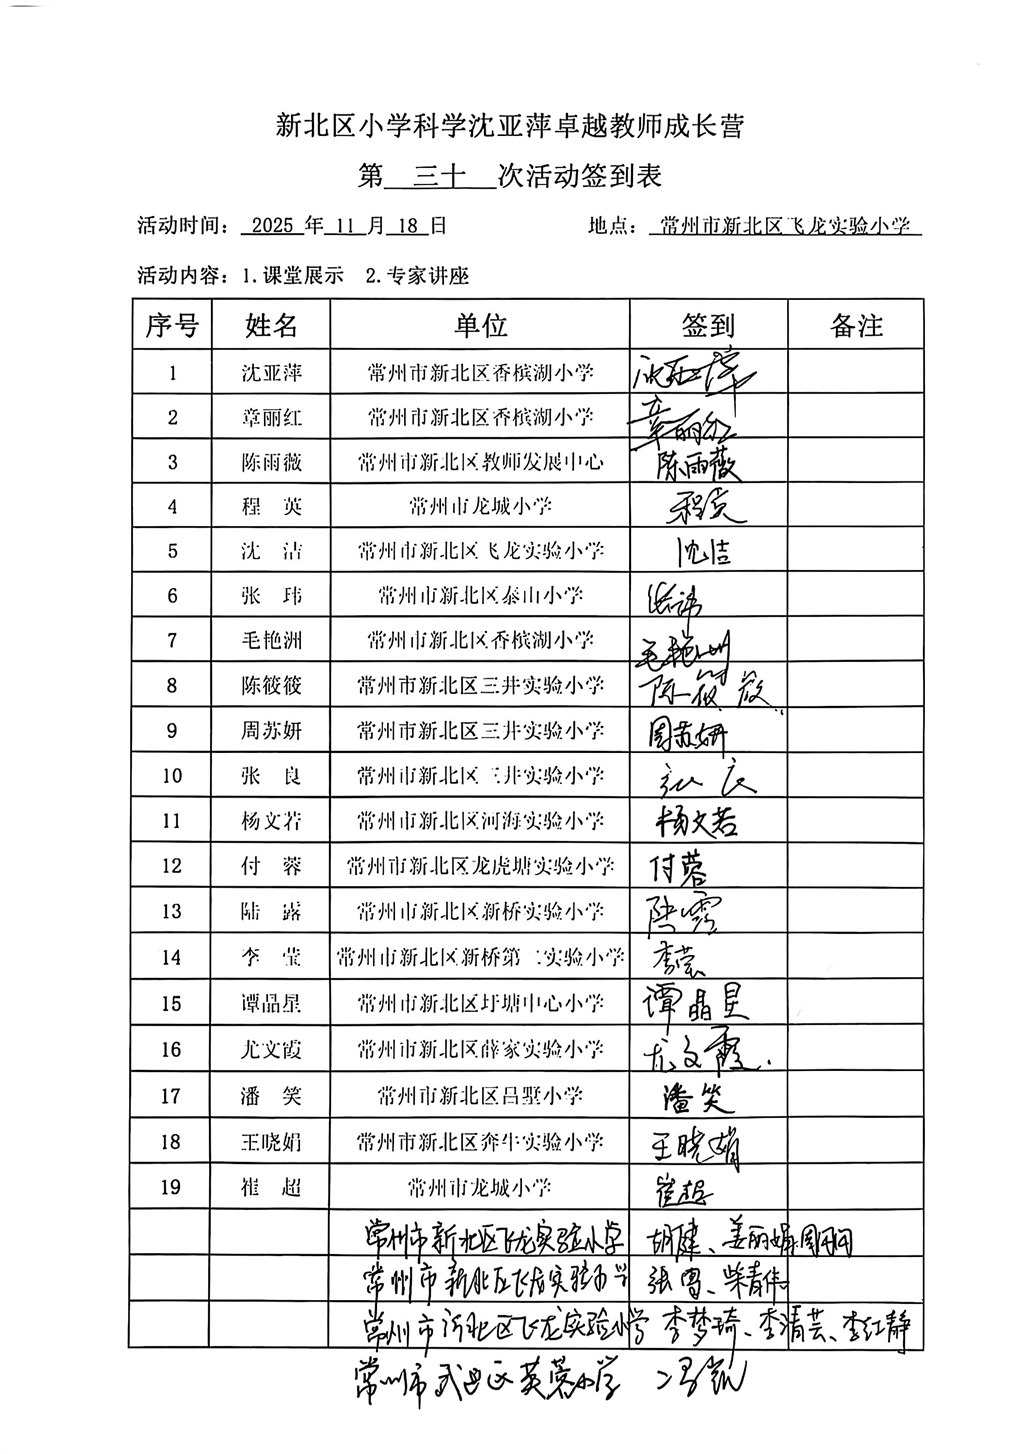 新北区小学科学沈亚萍卓越教师成长营
第 三十 次活动签到表
活动时间：2025 年 11 月 18 日 地点：常州市新北区飞龙实验小学
活动内容：1.课堂展示 2.专家讲座
序号 姓名 单位 签到 备注
1 沈亚萍 常州市新北区香槟湖小学 沈亚萍
2 章丽红 常州市新北区香槟湖小学 章丽红
3 陈雨薇 常州市新北区教师发展中心 陈雨薇
4 程 英 常州市龙城小学 程英
5 沈 洁 常州市新北区飞龙实验小学 沈洁
6 张 玮 常州市新北区泰山小学 张玮
7 毛艳洲 常州市新北区香槟湖小学 毛艳洲
8 陈筱筱 常州市新北区三井实验小学 陈筱筱
9 周苏妍 常州市新北区三井实验小学 周苏妍
10 张 良 常州市新北区三井实验小学 张良
11 杨文若 常州市新北区河海实验小学 杨文若
12 付 蓉 常州市新北区龙虎塘实验小学 付蓉
13 陆 露 常州市新北区新桥实验小学 陆露
14 李 莹 常州市新北区新桥第二实验小学 李莹
15 谭晶星 常州市新北区圩塘中心小学 谭晶星
16 尤文霞 常州市新北区薛家实验小学 尤文霞.
17 潘 笑 常州市新北区吕墅小学 潘笑
18 王晓娟 常州市新北区奔牛实验小学 王晓娟
19 崔 超 常州市龙城小学 崔超
常州市新北区飞龙实验小学 胡健、姜丽娟
常州市新北区飞龙实验小学 张雪、柴青伟
常州市新北区飞龙实验小学 李梦琦、李清芸、李红静
常州市武进区芙蓉小学 冯凯